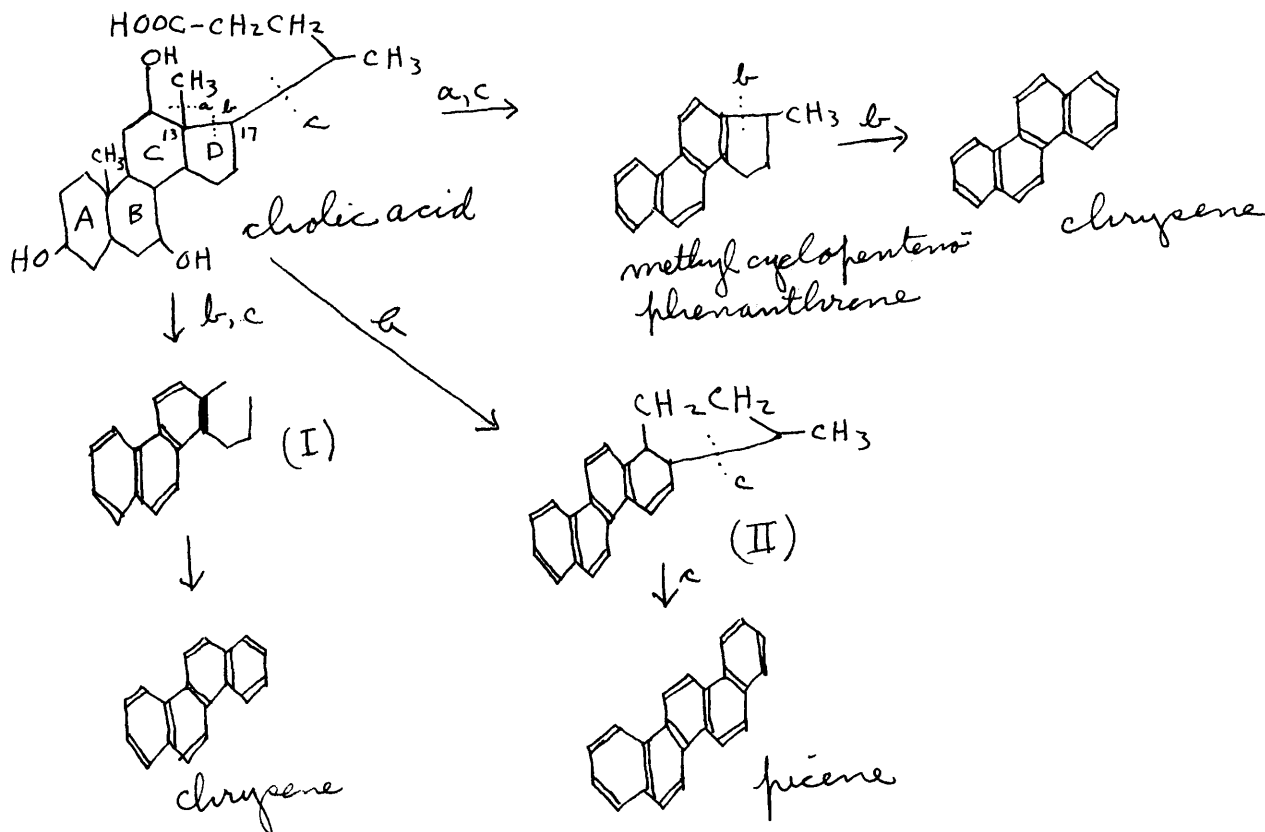 HOOC-CH2CH2
OH
CH3
CH3
a
b
c
13
17
C
D
CH3
A
B
HO
OH
cholic acid
a, c
b
CH3
methyl cyclopenteno-
phenanthrene
b
chrysene
b, c
b
(I)
CH2CH2
CH3
c
(II)
c
chrysene
picene